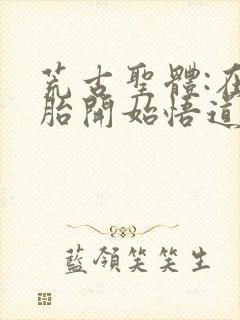 荒古聖體:在
胎開始悟道
藍領笑笑生